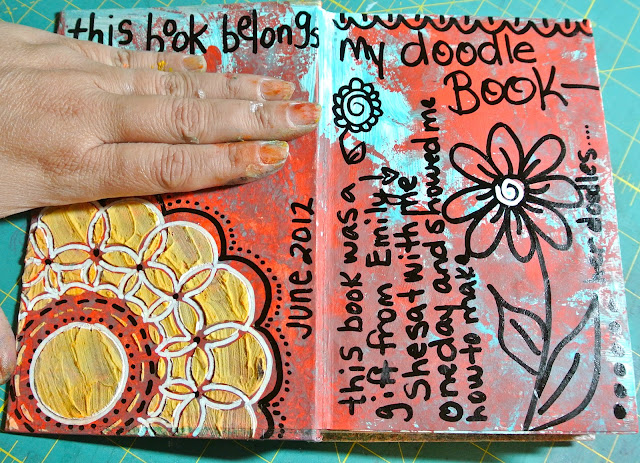 this book belongs
June 2012
My doodle
BOOK—
this book was a
gift from Emily!
She sat with me
one day and showed me
how to make
her doodles....